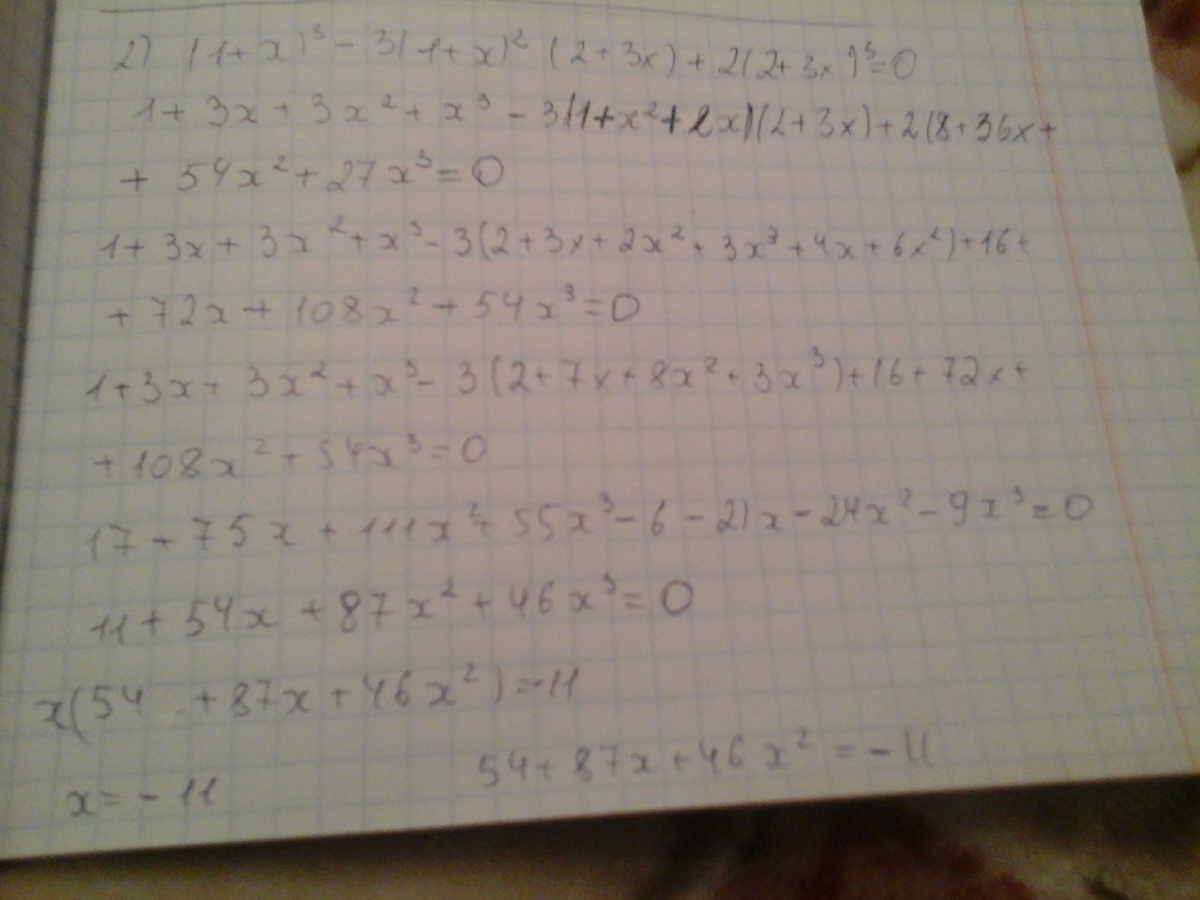 2) (1+x)³ - 3(1+x)² (2+3x) + 2(2+3x)³=0
1+ 3x + 3x² + x³ - 3(1+x²+2x)(2+3x)+2(8+36x+
+ 54x² + 27x³ = 0
1+ 3x + 3x² + x³ - 3(2+3x+2x²+3x³+4x+6x²)+16+
+ 72x + 108x² + 54x³ = 0
1+3x+ 3x² + x³ - 3(2+7x+8x²+3x³)+16+72x+
+108x² + 54x³ = 0
17 + 75x + 111x² + 55x³ - 6 - 21x - 24x² - 9x³ = 0
11 + 54x + 87x² + 46x³ = 0
x(54 + 87x + 46x²) = -11
x = -11 54 + 87x + 46x² = -11